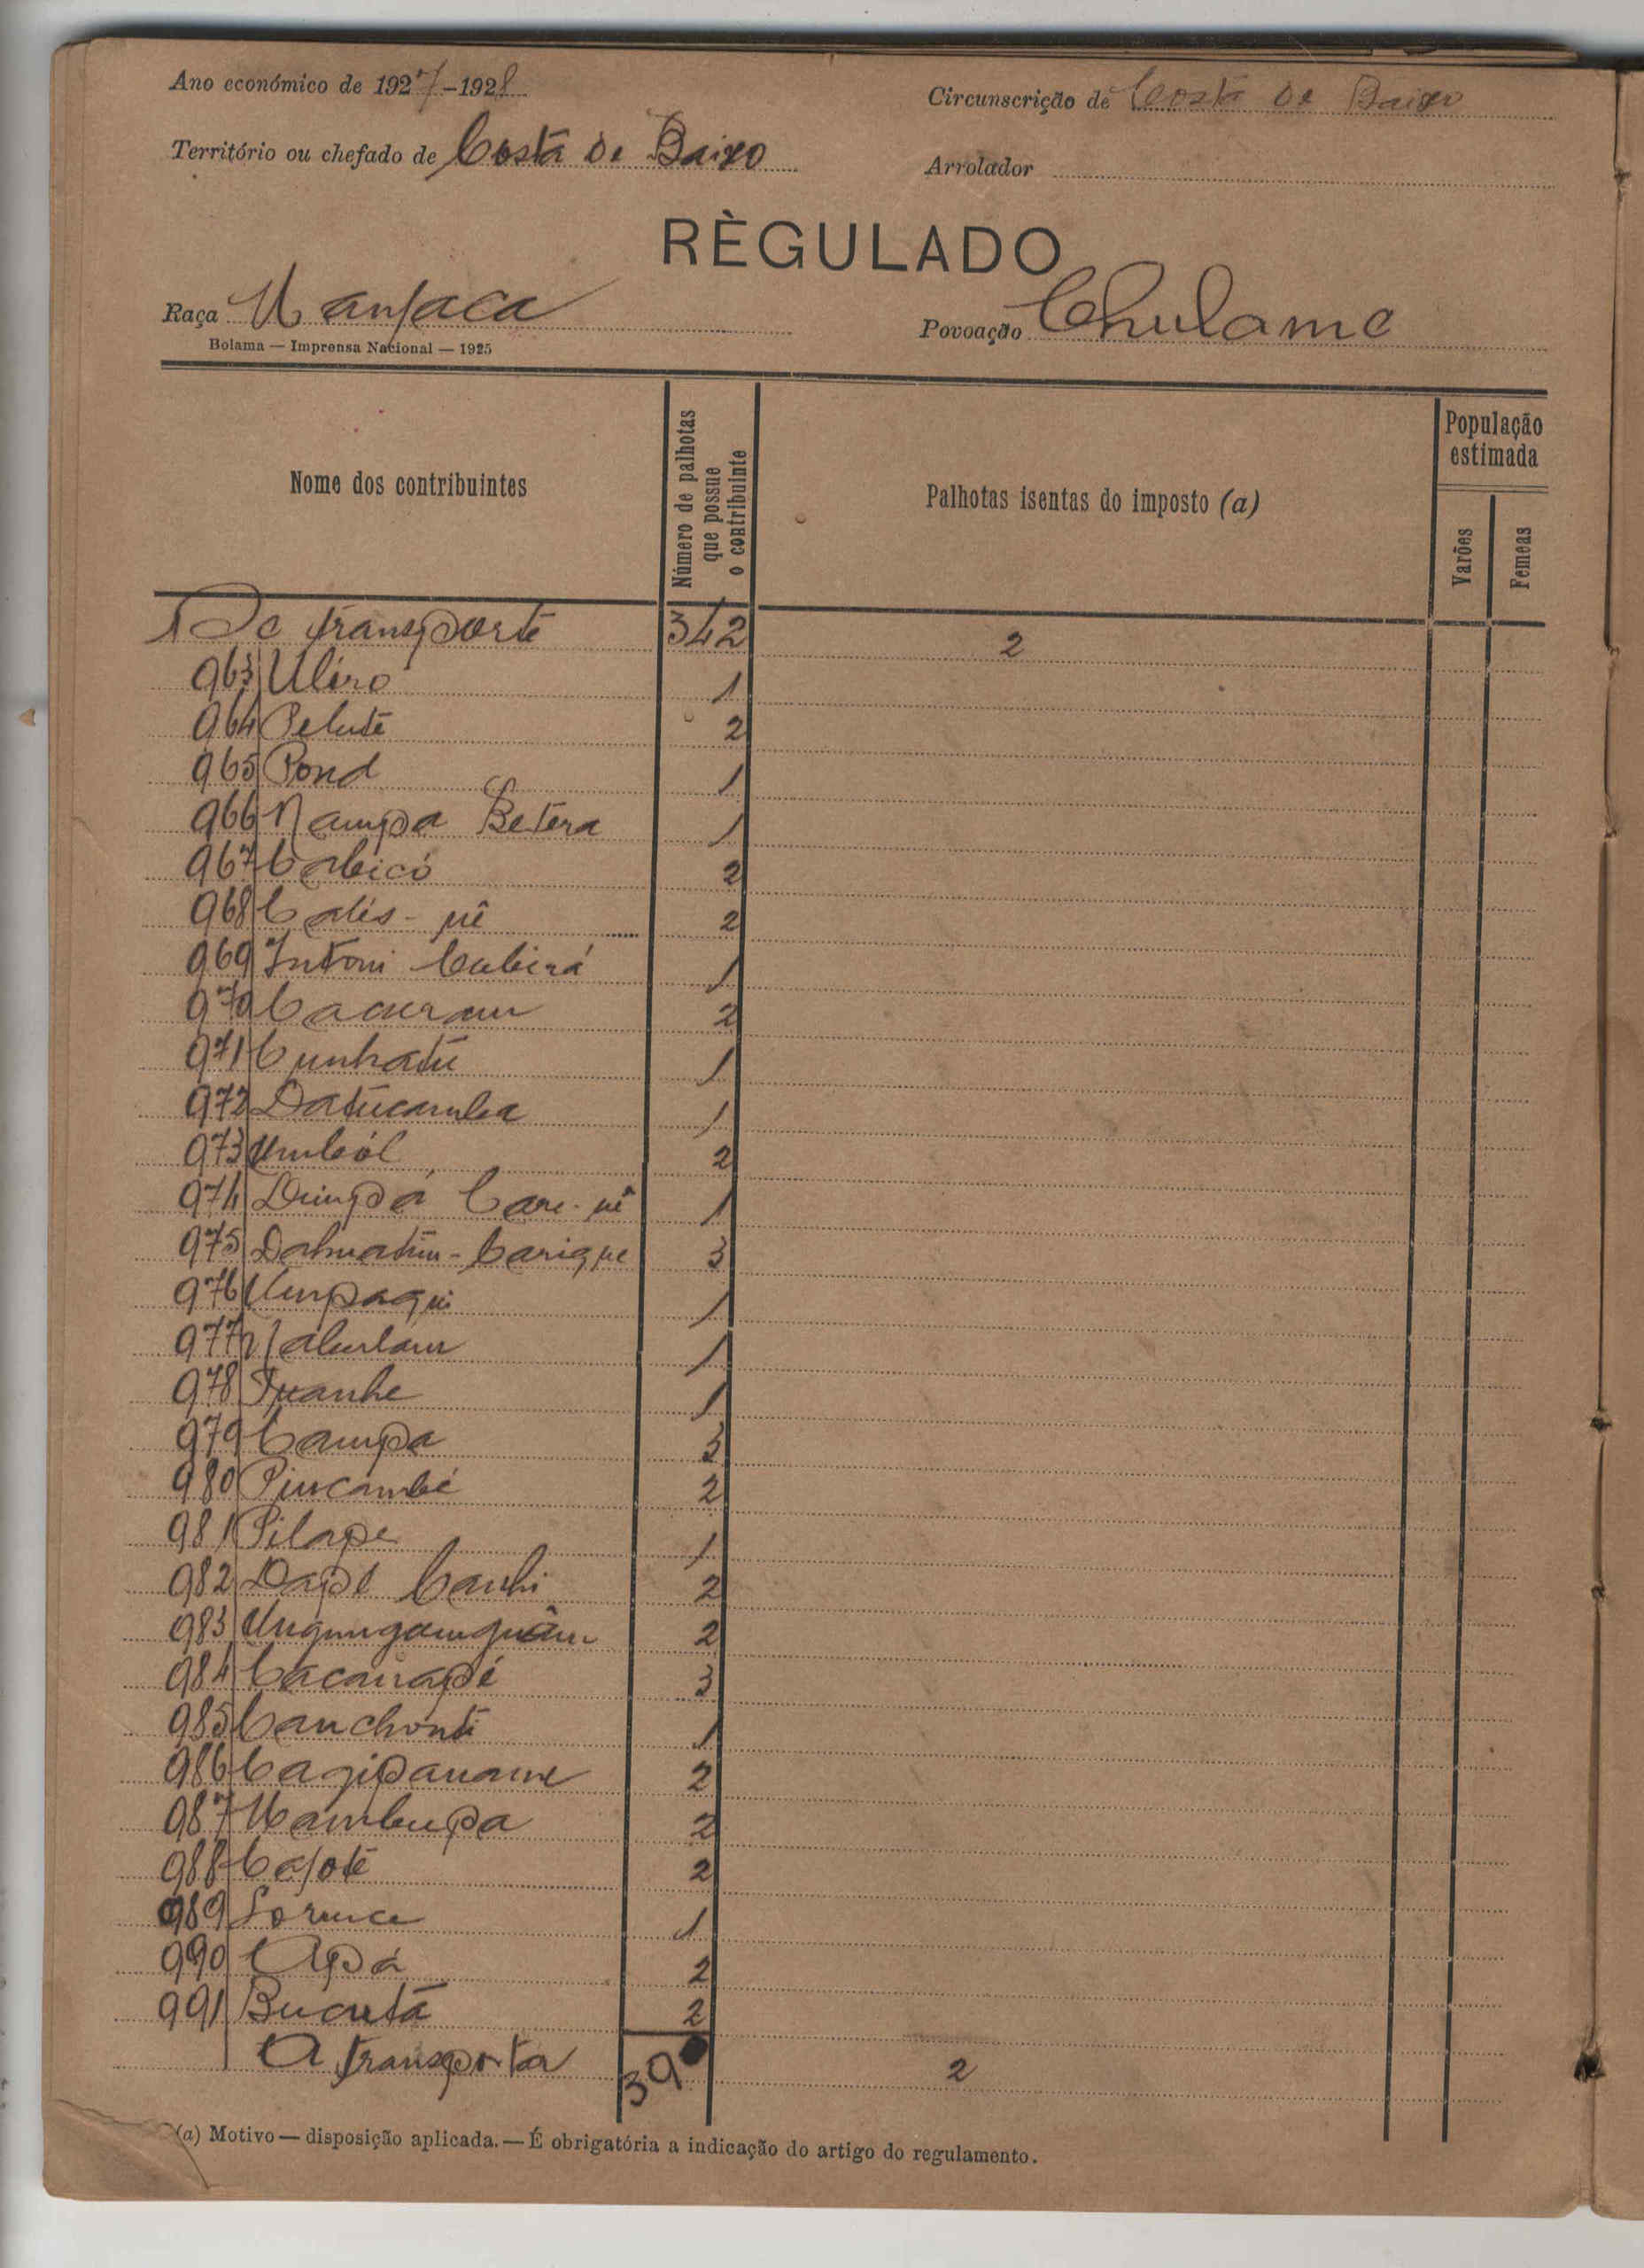 Ano económico de 1927-1928
Circunscrição de Costa de Baixo
Território ou chefado de Costa de Baixo
Arrolador
RÈGULADO
Raça Manjaca
Povoação Chulame
Bolama — Imprensa Nacional — 1925
Nome dos contribuintes
Número de palhotas que possue o contribuinte
Palhotas isentas do imposto (a)
População estimada
Varões
Femeas
De transporte 342 2
963 Uliro 1
964 Pelute 2
965 Pond 1
966 Nampa Betera 1
967 Cabicó 2
968 Calis-nê 2
969 Intoni Cubirá 1
970 Cacuram 2
971 Cunhatú 1
972 Datucamba 1
973 Umból 2
974 Duimpá Care-nê 1
975 Dahmatim-Carique 3
976 Umpaqui 1
977 Nabulam 1
978 Iuanhe 1
979 Campa 3
980 Pincambé 2
981 Pilape 1
982 Dapê Canhi 2
983 2
984 3
985 Canchonti 1
986 Cagipaname 2
987 Mambupa 2
988 Cajoté 2
989 Lorence 1
990 Apá 2
991 Bucutá 2
A transporta 39 2
(a) Motivo — disposição aplicada. — É obrigatória a indicação do artigo do regulamento.